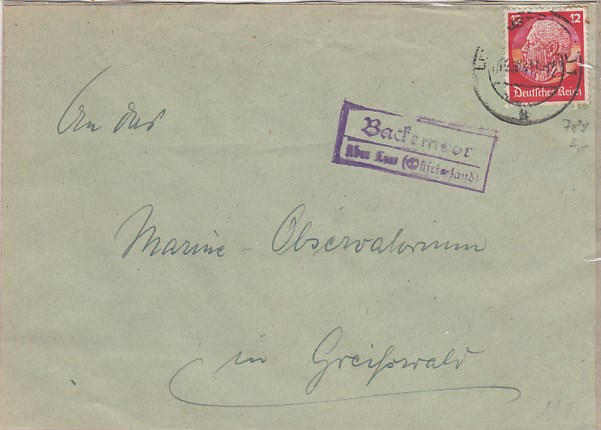 12 12
Deutsches Reich
An das
Backemoor
über Leer (Ostfriesland)
Marine-Observatorium
in Greifswald